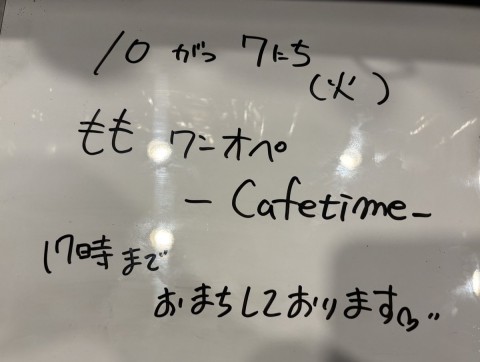 10がつ7にち
(火)
もも ワンオペ
- Cafetime -
17時まで
おまちしております